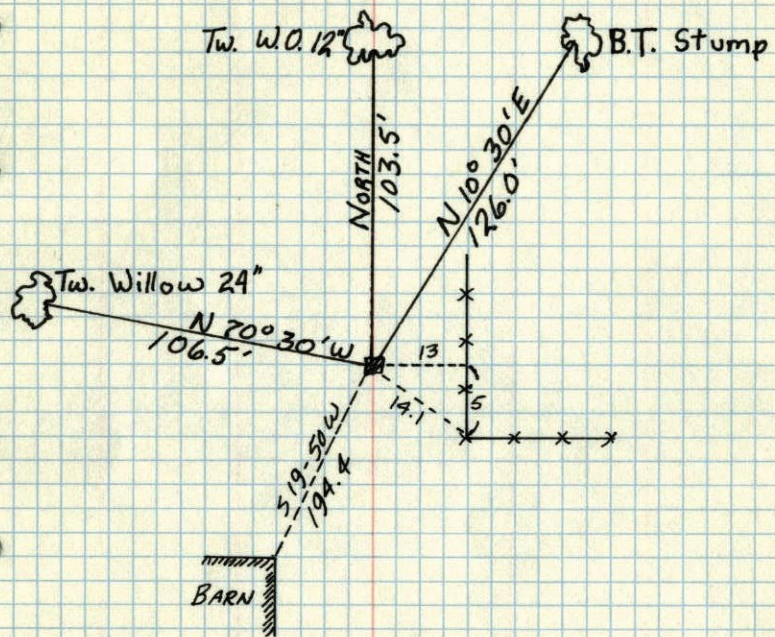 Tw. W.O. 12"
B.T. Stump
NORTH
103.5'
N 10° 30' E
126.0'
Tw. Willow 24"
N 70° 30' W
106.5'
13
14.1
5
S 19-50 W
194.4
BARN